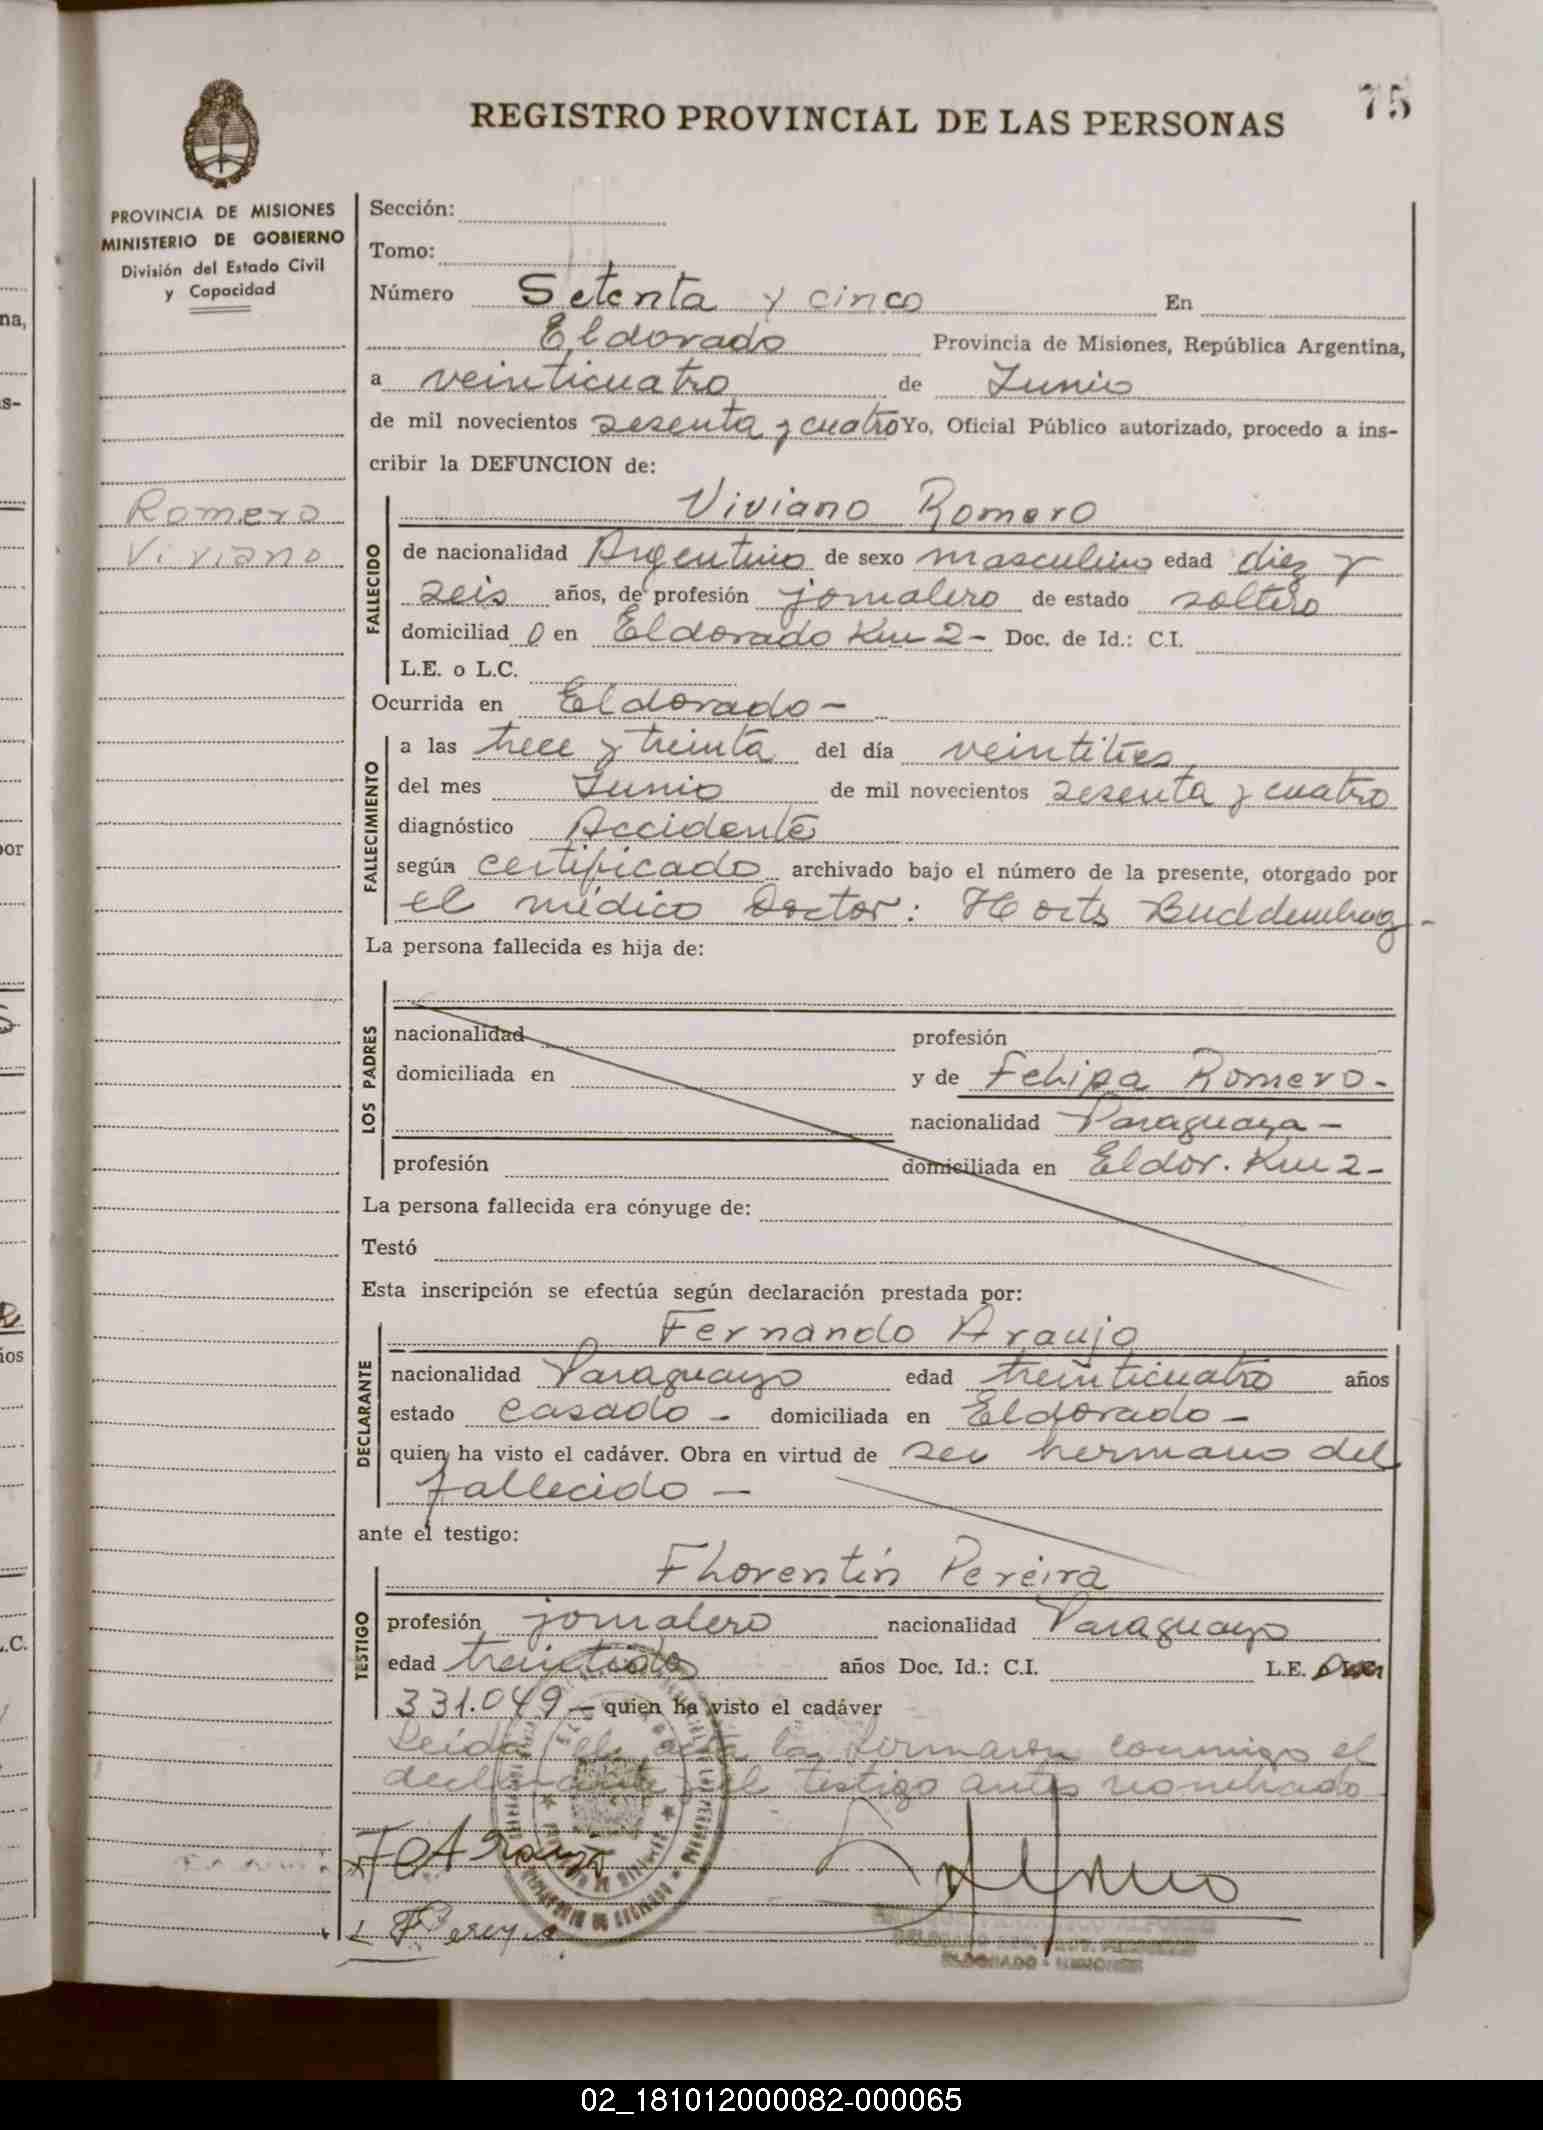 75
REGISTRO PROVINCIAL DE LAS PERSONAS
PROVINCIA DE MISIONES
MINISTERIO DE GOBIERNO
División del Estado Civil
y Capacidad
Romero
Viviano
Sección:
Tomo:
Número Setenta y cinco En
Eldorado Provincia de Misiones, República Argentina,
a veinticuatro de Junio
de mil novecientos sesenta y cuatro Yo, Oficial Público autorizado, procedo a ins-
cribir la DEFUNCION de:
Viviano Romero
FALLECIDO
de nacionalidad Argentino de sexo masculino edad diez y
seis años, de profesión jornalero de estado soltero
domiciliad o en Eldorado Km 2- Doc. de Id.: C.I.
L.E. o L.C.
Ocurrida en Eldorado -
FALLECIMIENTO
a las trece y treinta del día veintitres
del mes Junio de mil novecientos sesenta y cuatro
diagnóstico Accidente
según certificado archivado bajo el número de la presente, otorgado por
el médico Doctor: Horts
La persona fallecida es hija de:
LOS PADRES
nacionalidad profesión
domiciliada en y de Felipa Romero.-
nacionalidad Paraguaya -
profesión domiciliada en Eldor. Km 2-
La persona fallecida era cónyuge de:
Testó
Esta inscripción se efectúa según declaración prestada por:
Fernando Araujo
DECLARANTE
nacionalidad Paraguayo edad treinticuatro años
estado casado - domiciliada en Eldorado -
quien ha visto el cadáver. Obra en virtud de ser hermano del
fallecido -
ante el testigo:
Florentín Pereira
TESTIGO
profesión jornalero nacionalidad Paraguayo
edad treintidos años Doc. Id.: C.I. L.E.
331.049 - quien ha visto el cadáver
Leída el acta la firmaron conmigo el
declarante y el testigo antes nombrado
ELDORADO - MISIONES
02_181012000082-000065